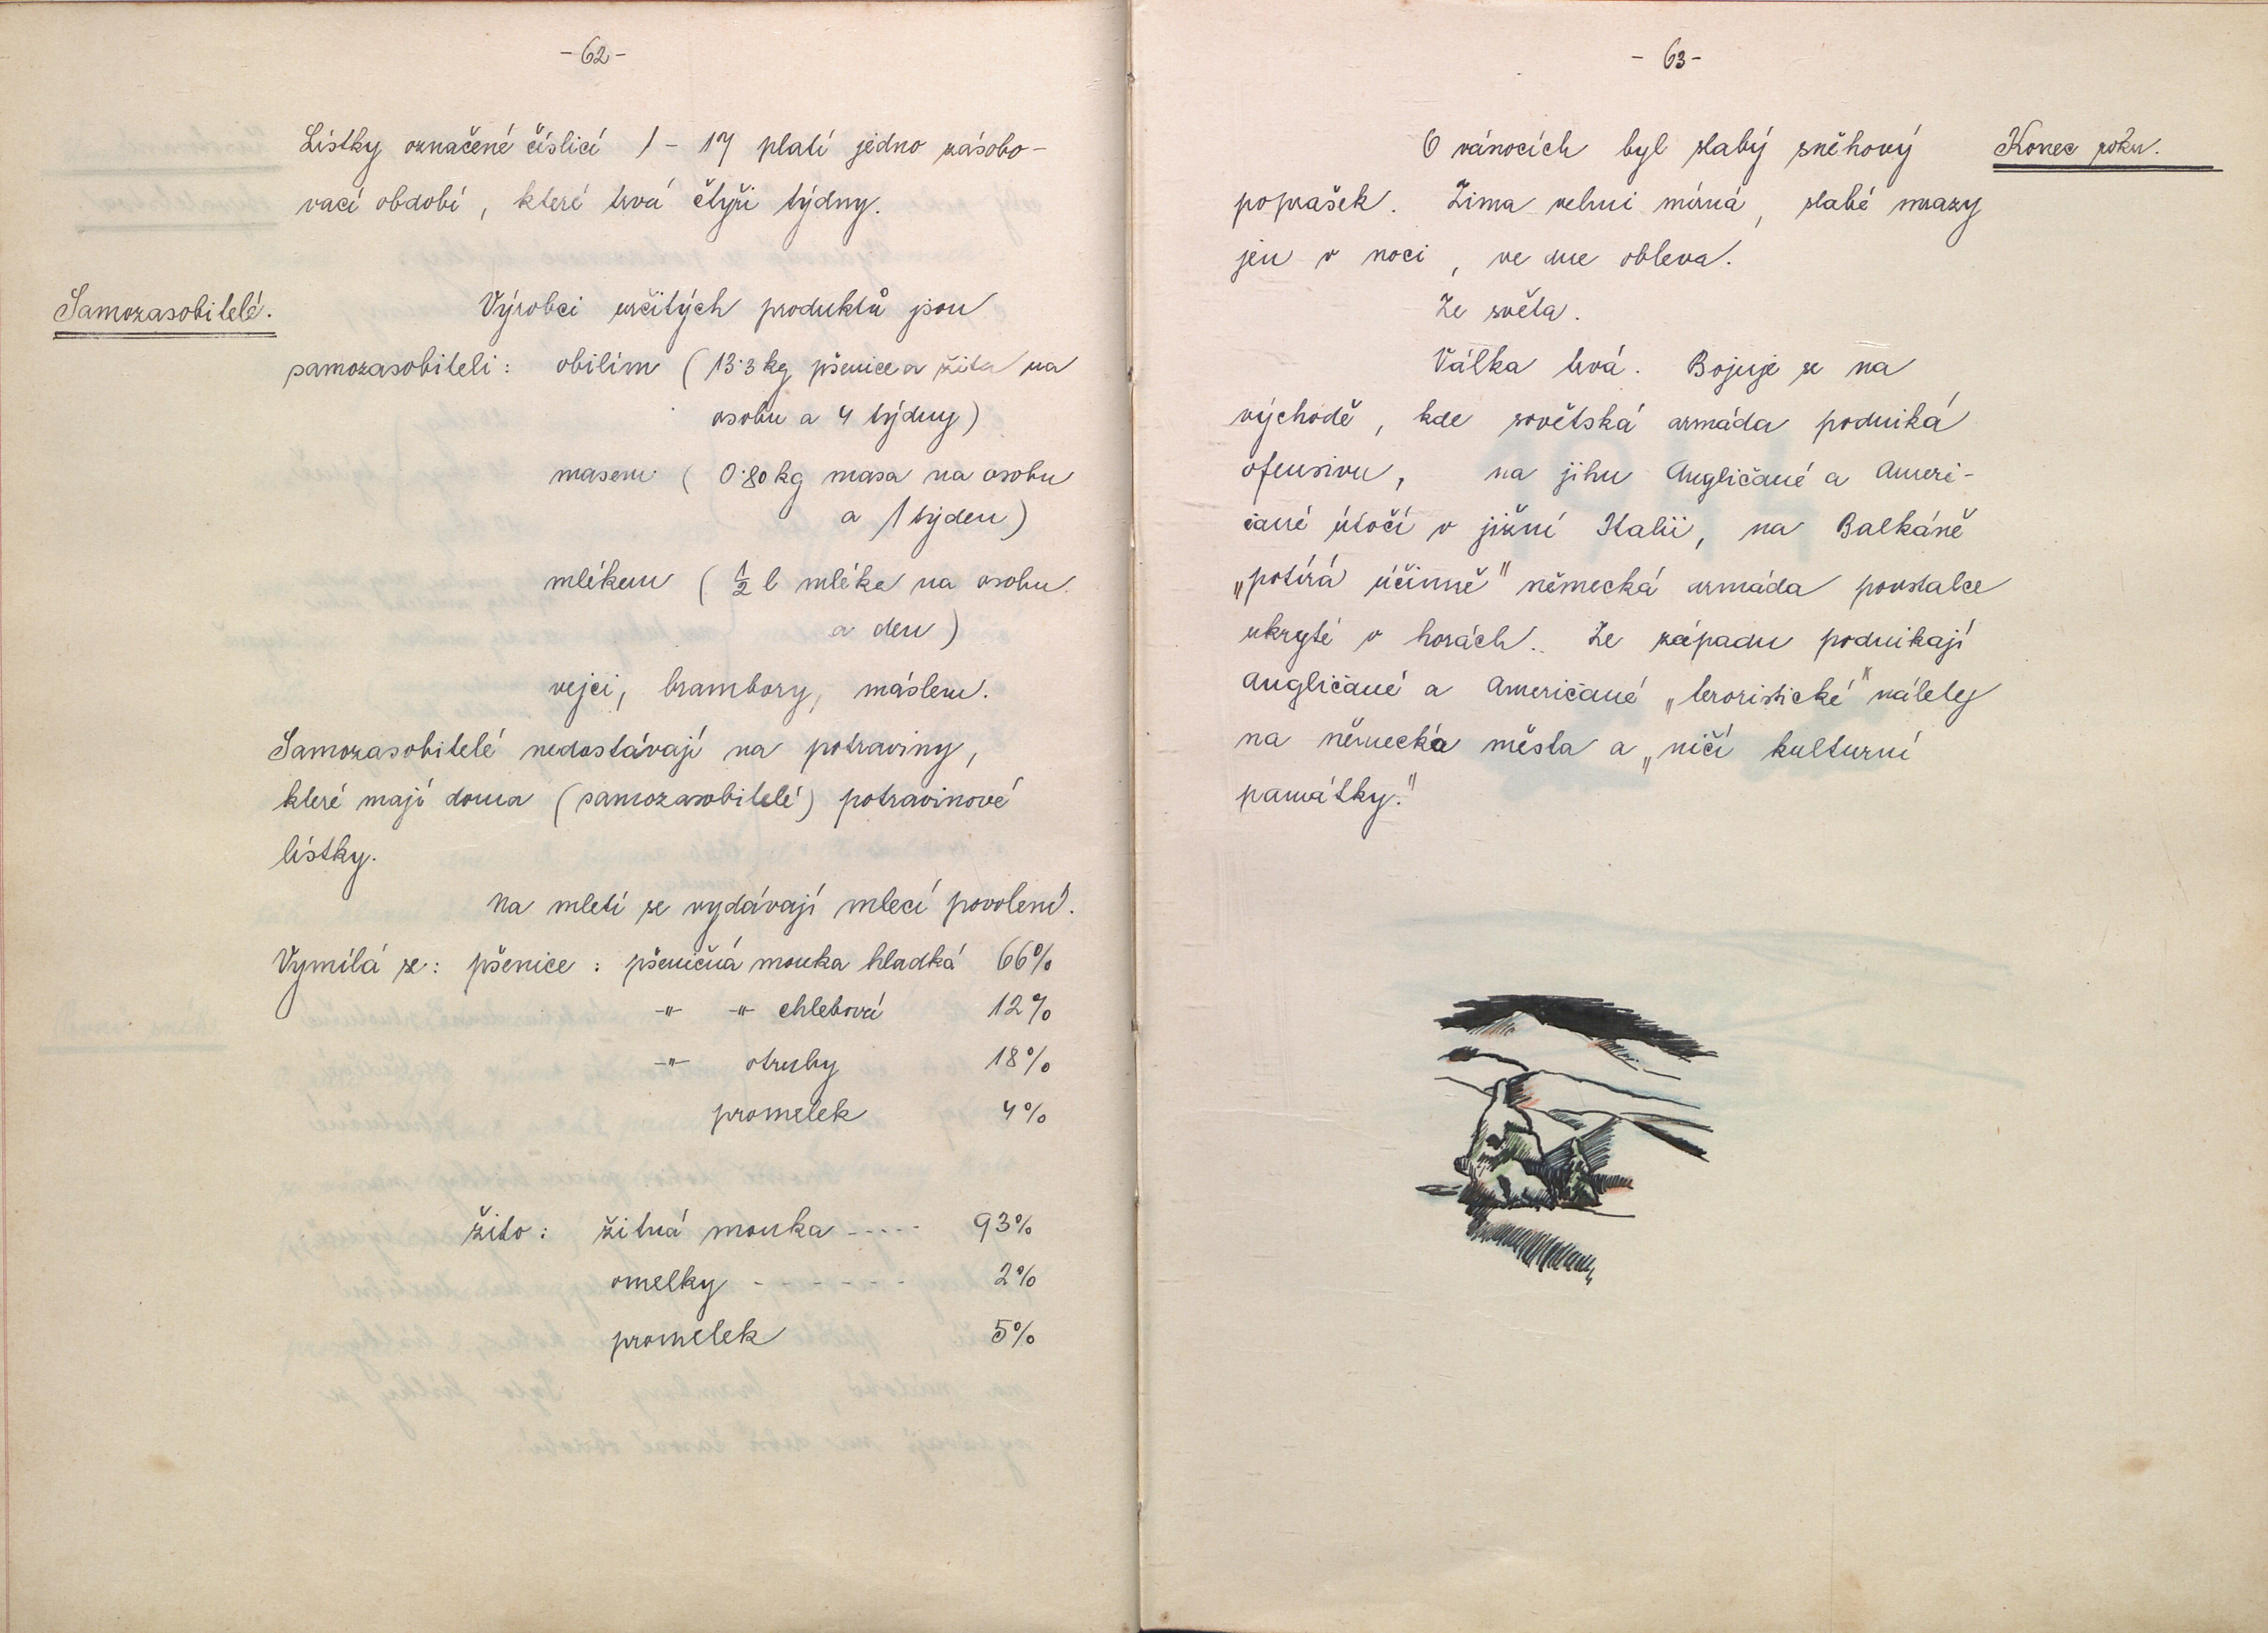 -62-
Lístky označené číslicí 1-17 platí jedno zásobo-
vací období, které trvá čtyři týdny.
Samozasobitelé.
Výrobci určitých produktů jsou
samozasobiteli: obilím (13·3 kg pšenice a žita na
osobu a 4 týdny)
masem (0·80 kg masa na osobu
a 1 týden)
mlékem (½ l mléka na osobu
a den)
vejci, brambory, máslem.
Samozasobitelé nedostávají na potraviny,
které mají doma (samozasobitelé) potravinové
lístky.
Na mletí se vydávají mlecí povolení.
Vymílá se: pšenice: pšeničná mouka hladká 66%
-"- -"- chlebová 12%
-"- otruby 18%
promelek 4%
žito: žitná mouka ----- 93%
omelky ------ 2%
promelek 5%
-63-
Konec roku.
O vánocích byl slabý sněhový
poprašek. Zima velmi mírná, slabé mrazy
jen v noci, ve dne obleva.
Ze světa.
Válka trvá. Bojuje se na
východě, kde sovětská armáda podniká
ofensivu, na jihu Angličané a Ameri-
čané útočí v jižní Italii, na Balkáně
„potírá účinně" německá armáda povstalce
ukryté v horách.. Ze západu podnikají
Angličané a Američané „teroristické" nálety
na německá města a „ničí kulturní
památky."